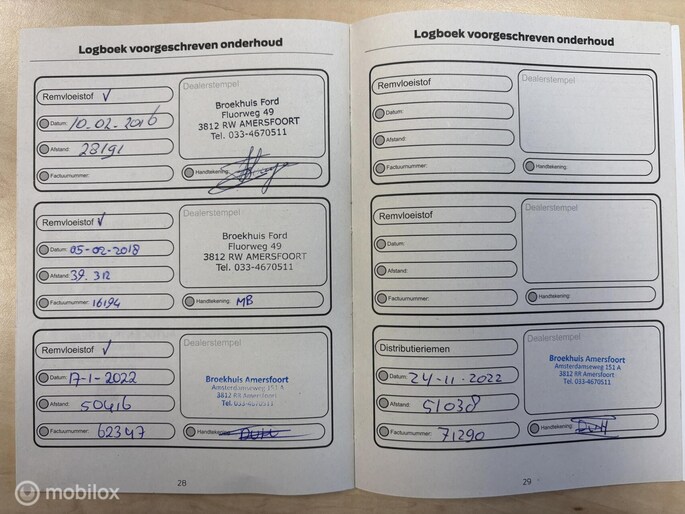 Logboek voorgeschreven onderhoud
Remvloeistof ✓
Dealerstempel
Datum: 10-02-2016
Afstand: 28191
Factuurnummer:
Broekhuis Ford
Fluorweg 49
3812 RW AMERSFOORT
Tel. 033-4670511
Handtekening:
Remvloeistof ✓
Dealerstempel
Datum: 05-02-2018
Afstand: 39.312
Factuurnummer: 16194
Broekhuis Ford
Fluorweg 49
3812 RW AMERSFOORT
Tel. 033-4670511
Handtekening: MB
Remvloeistof ✓
Dealerstempel
Datum: 17-1-2022
Afstand: 50416
Factuurnummer: 62347
Broekhuis Amersfoort
Amsterdamseweg 151 A
3812 RR Amersfoort
Tel. 033-4670511
Handtekening:
28
Logboek voorgeschreven onderhoud
Remvloeistof
Dealerstempel
Datum:
Afstand:
Factuurnummer:
Handtekening:
Remvloeistof
Dealerstempel
Datum:
Afstand:
Factuurnummer:
Handtekening:
Distributieriemen
Dealerstempel
Datum: 24-11-2022
Afstand: 51038
Factuurnummer: 71290
Broekhuis Amersfoort
Amsterdamseweg 151 A
3812 RR Amersfoort
Tel. 033-4670511
Handtekening:
29
mobilox